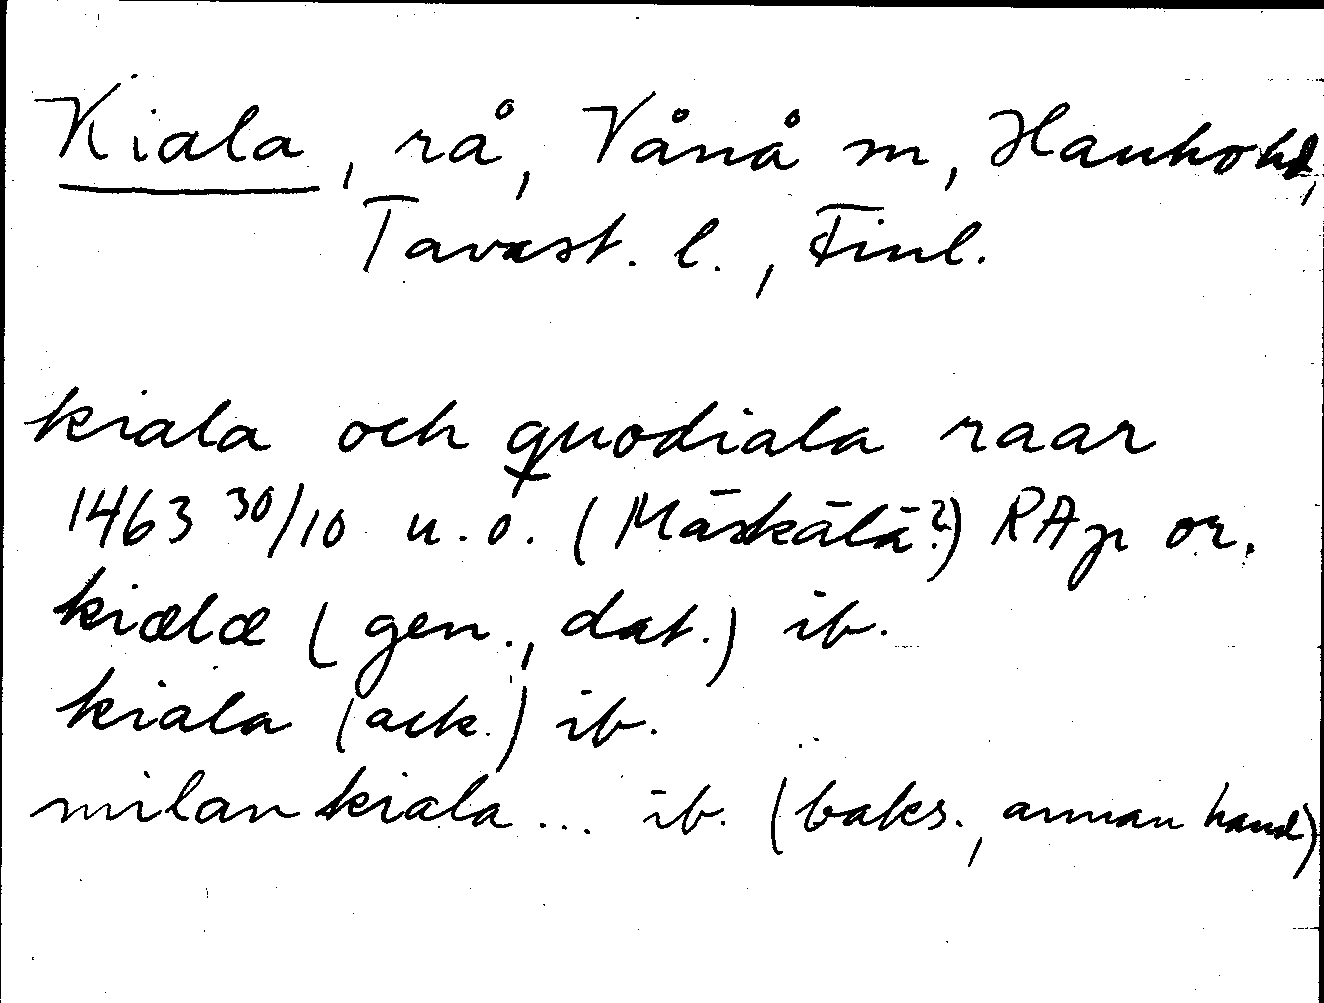 Kiala, rå, Vånå sn, Hauho hd,
Tavast. l., Finl.
kiala och quodiala raar
1463 30/10 u.o. (Mäskälä?) RAp or.
kiælæ (gen., dat.) ib.
kiala (ack.) ib.
milan kiala... ib. (baks., annan hand)